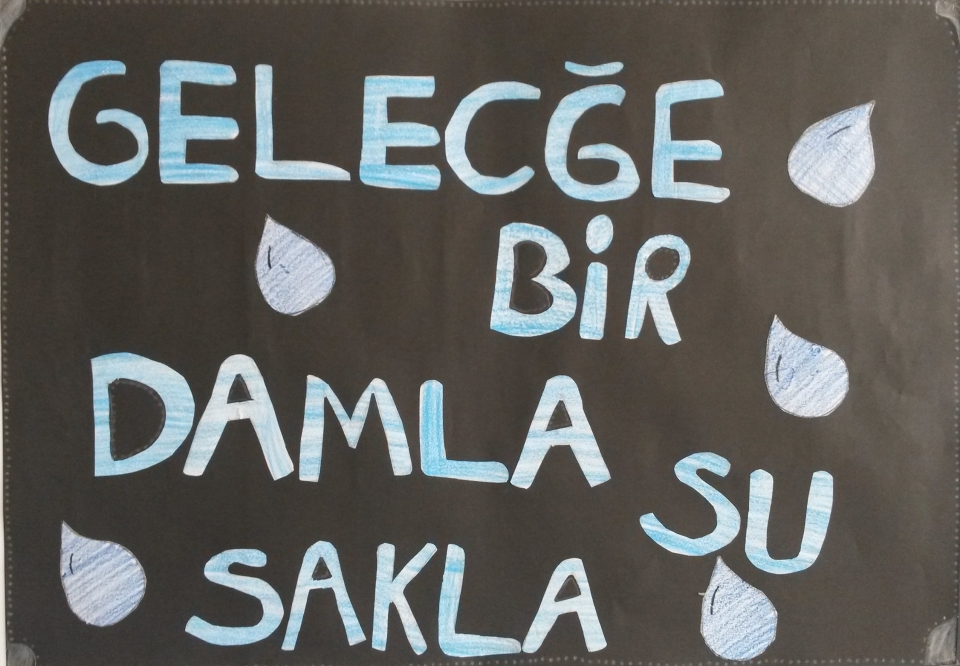 GELECĞE
BİR
DAMLA
SU
SAKLA